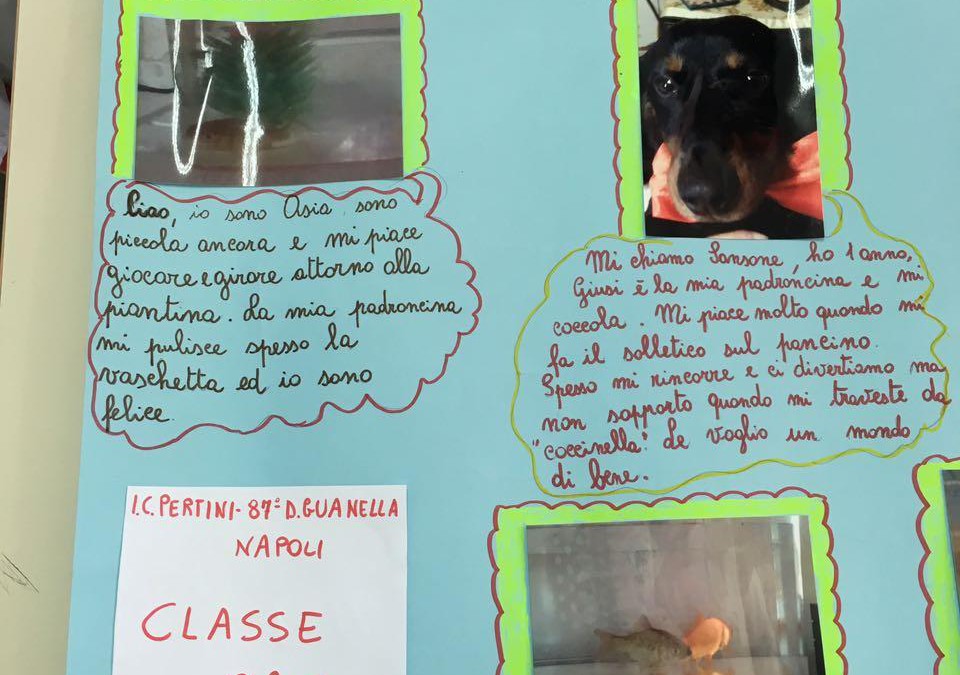 Ciao, io sono Asia, sono
piccola ancora e mi piace
giocare e girare attorno alla
piantina. La mia padroncina
mi pulisce spesso la
vaschetta ed io sono
felice.
Mi chiamo Sansone, ho 1 anno,
Giusi è la mia padroncina e mi
coccola. Mi piace molto quando mi
fa il solletico sul pancino.
Spesso mi rincorre e ci divertiamo ma
non sopporto quando mi traveste da
"coccinella". Le voglio un mondo
di bene.
I.C. PERTINI-87° D. GUANELLA
NAPOLI
CLASSE